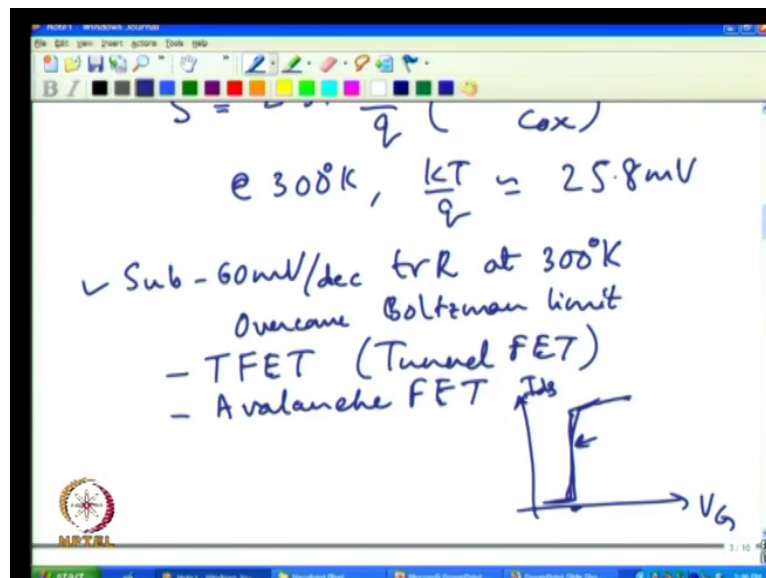 Note1 - Windows Journal
File Edit View Insert Actions Tools Help
B I
S =
q ( cox )
@ 300°K, kT/q ≃ 25.8mV
✓ Sub-60mV/dec trR at 300°K
Overcame Boltzman limit
- TFET (Tunnel FET)
- Avalanche FET
Ids
VG
NPTEL
3 / 10
start